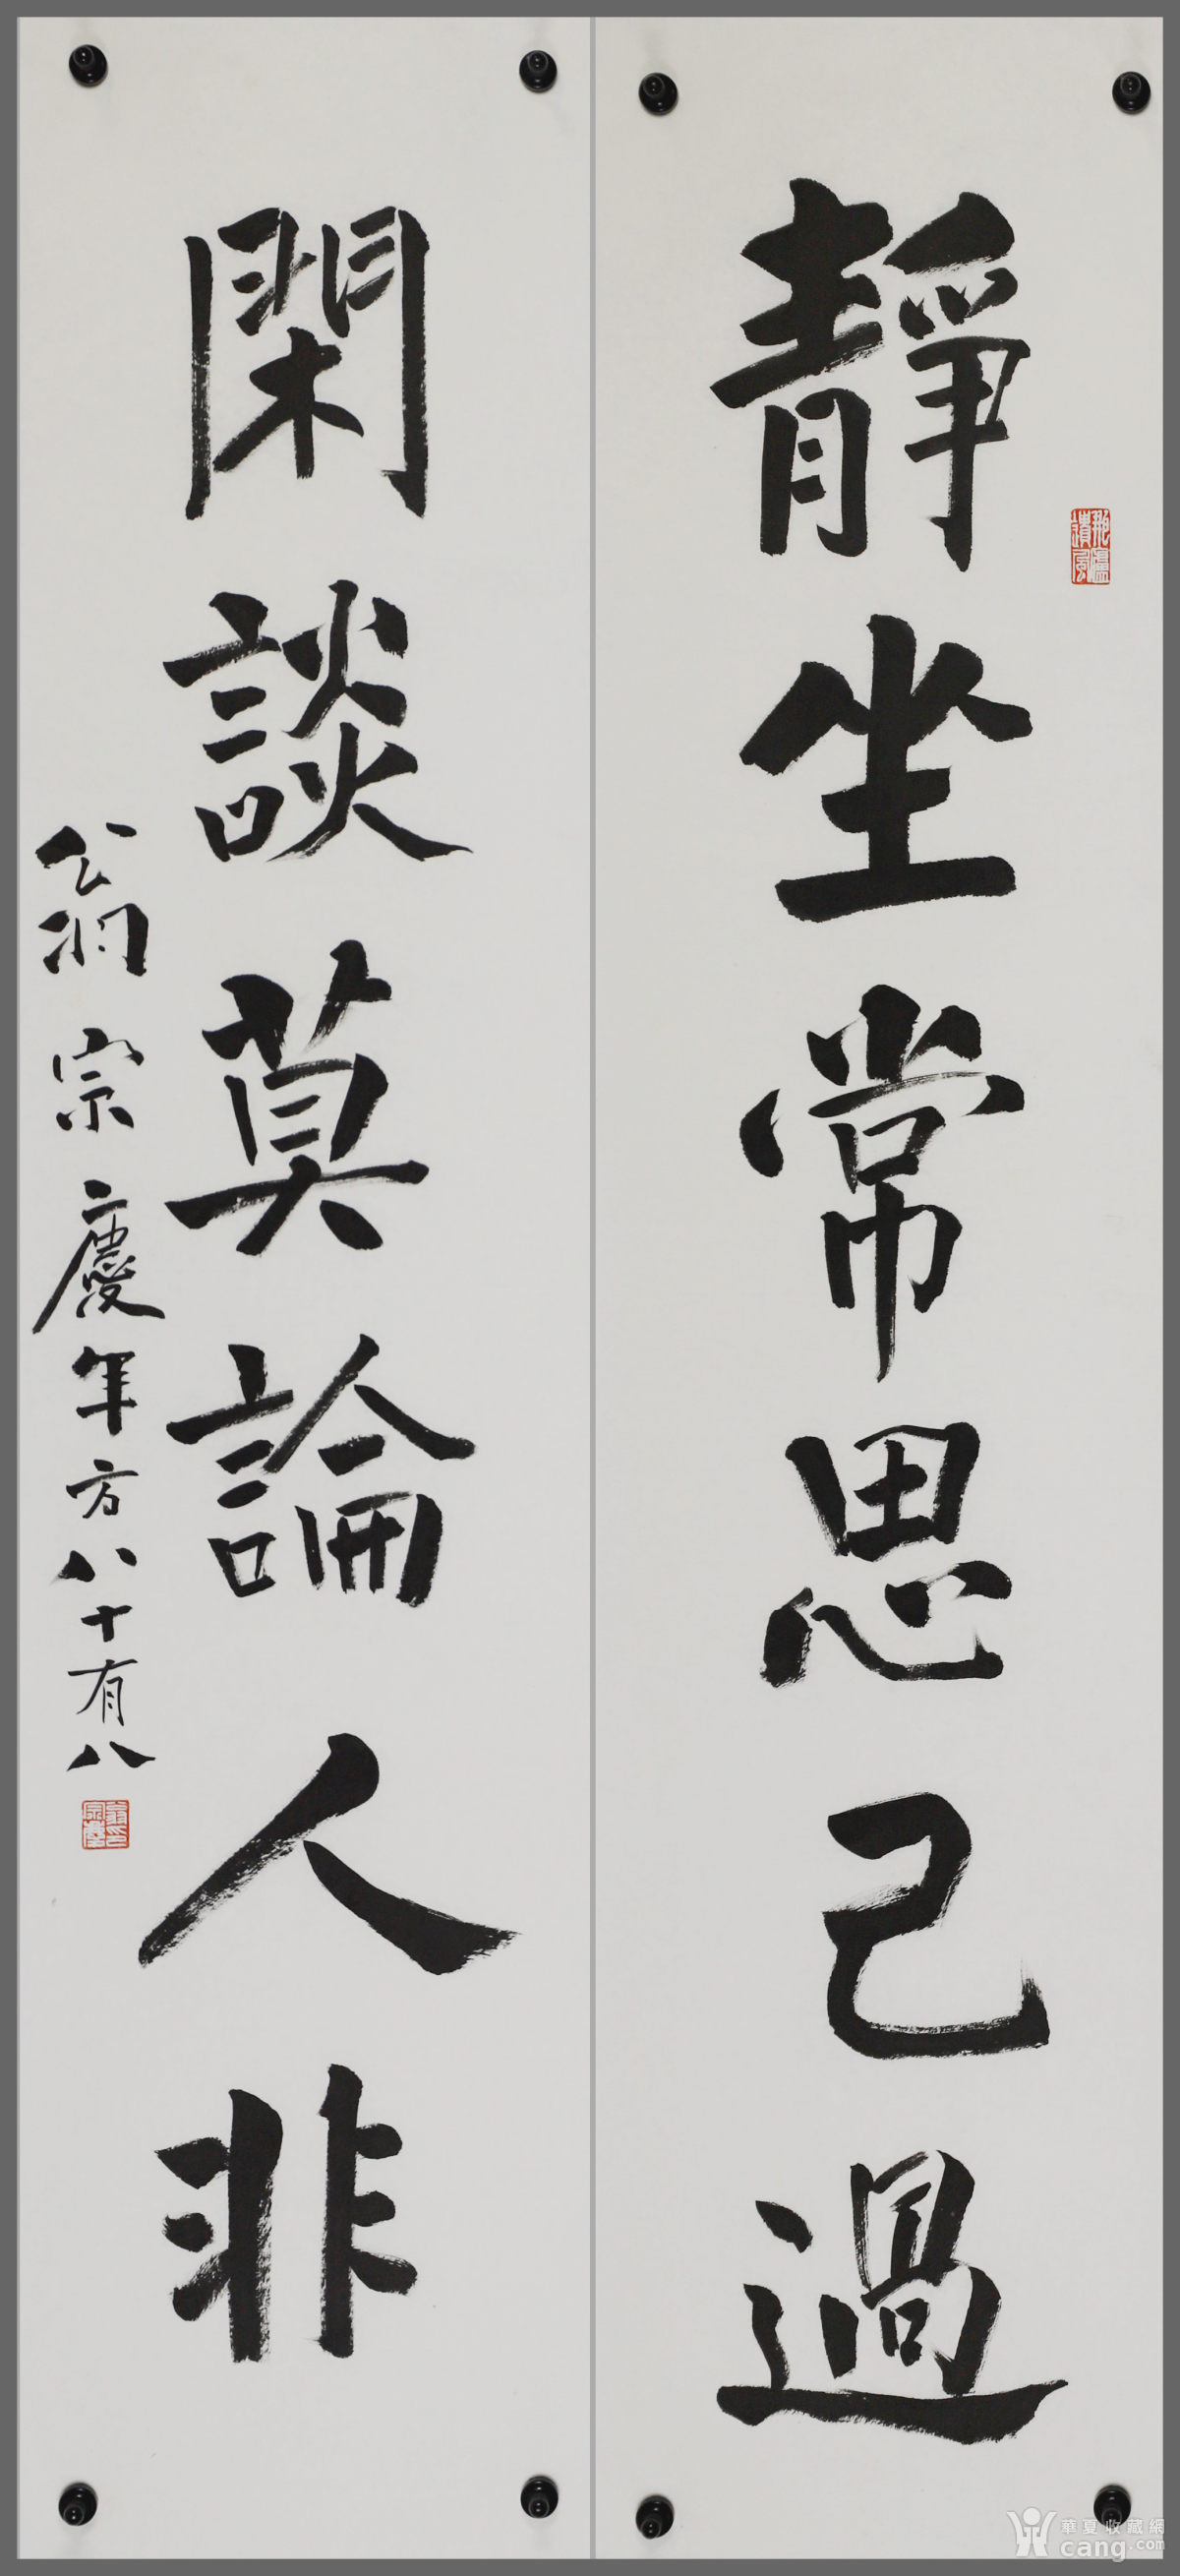 靜坐常思己過
閑談莫論人非
翁宗慶年方八十有八
翁宗慶印
華夏收藏網
cang.com